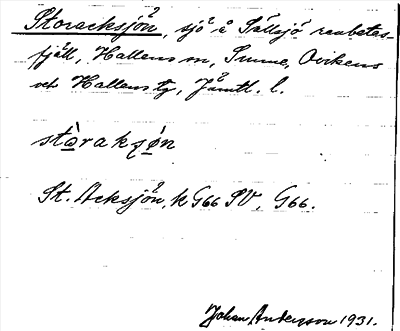 Storacksjön, sjö å Sällsjö renbetes-
fjäll, Hallens m, Sunne, Ovikens
och Hallens tg, Jämtl. l.
stòrakşø̀n
St. Acksjön, k G66 SV, G66.
Johan Anderzson 1931.